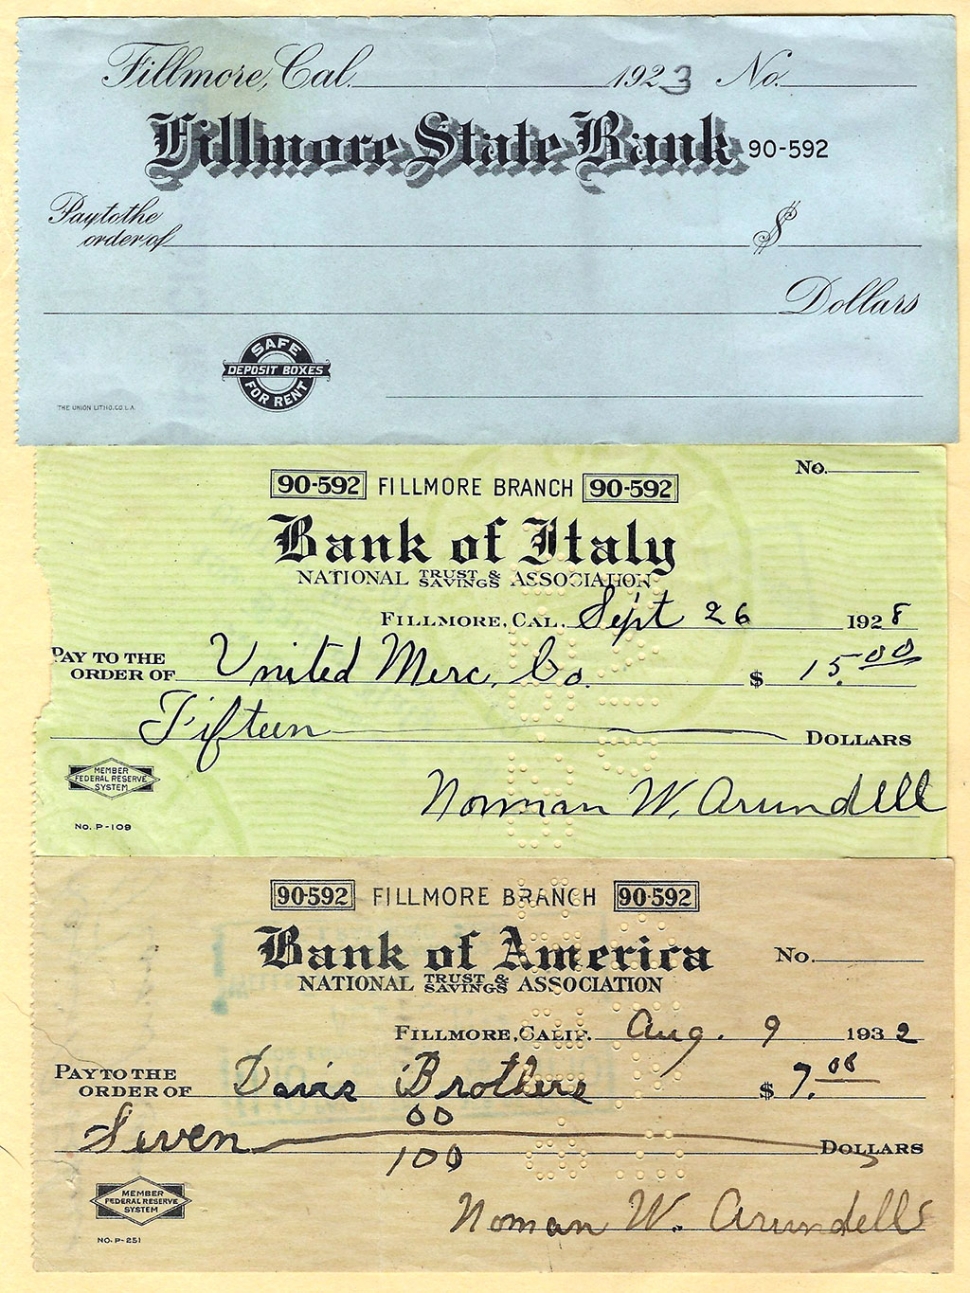 Fillmore, Cal. 1923 No.
Fillmore State Bank 90-592
Pay to the
order of $
Dollars
SAFE
DEPOSIT BOXES
FOR RENT
THE UNION LITHO. CO. L.A.
No.
90-592 FILLMORE BRANCH 90-592
Bank of Italy
NATIONAL TRUST & SAVINGS ASSOCIATION
FILLMORE, CAL. Sept 26 1928
PAY TO THE
ORDER OF United Merc. Co. $ 15.00
Fifteen DOLLARS
MEMBER
FEDERAL RESERVE
SYSTEM
Norman W. Arundell
NO. P-109
90-592 FILLMORE BRANCH 90-592
Bank of America No.
NATIONAL TRUST & SAVINGS ASSOCIATION
FILLMORE, CALIF. Aug. 9 1932
PAY TO THE
ORDER OF Davis Brothers $ 7.00
Seven 00/100 DOLLARS
MEMBER
FEDERAL RESERVE
SYSTEM
Norman W. Arundell
NO. P-251